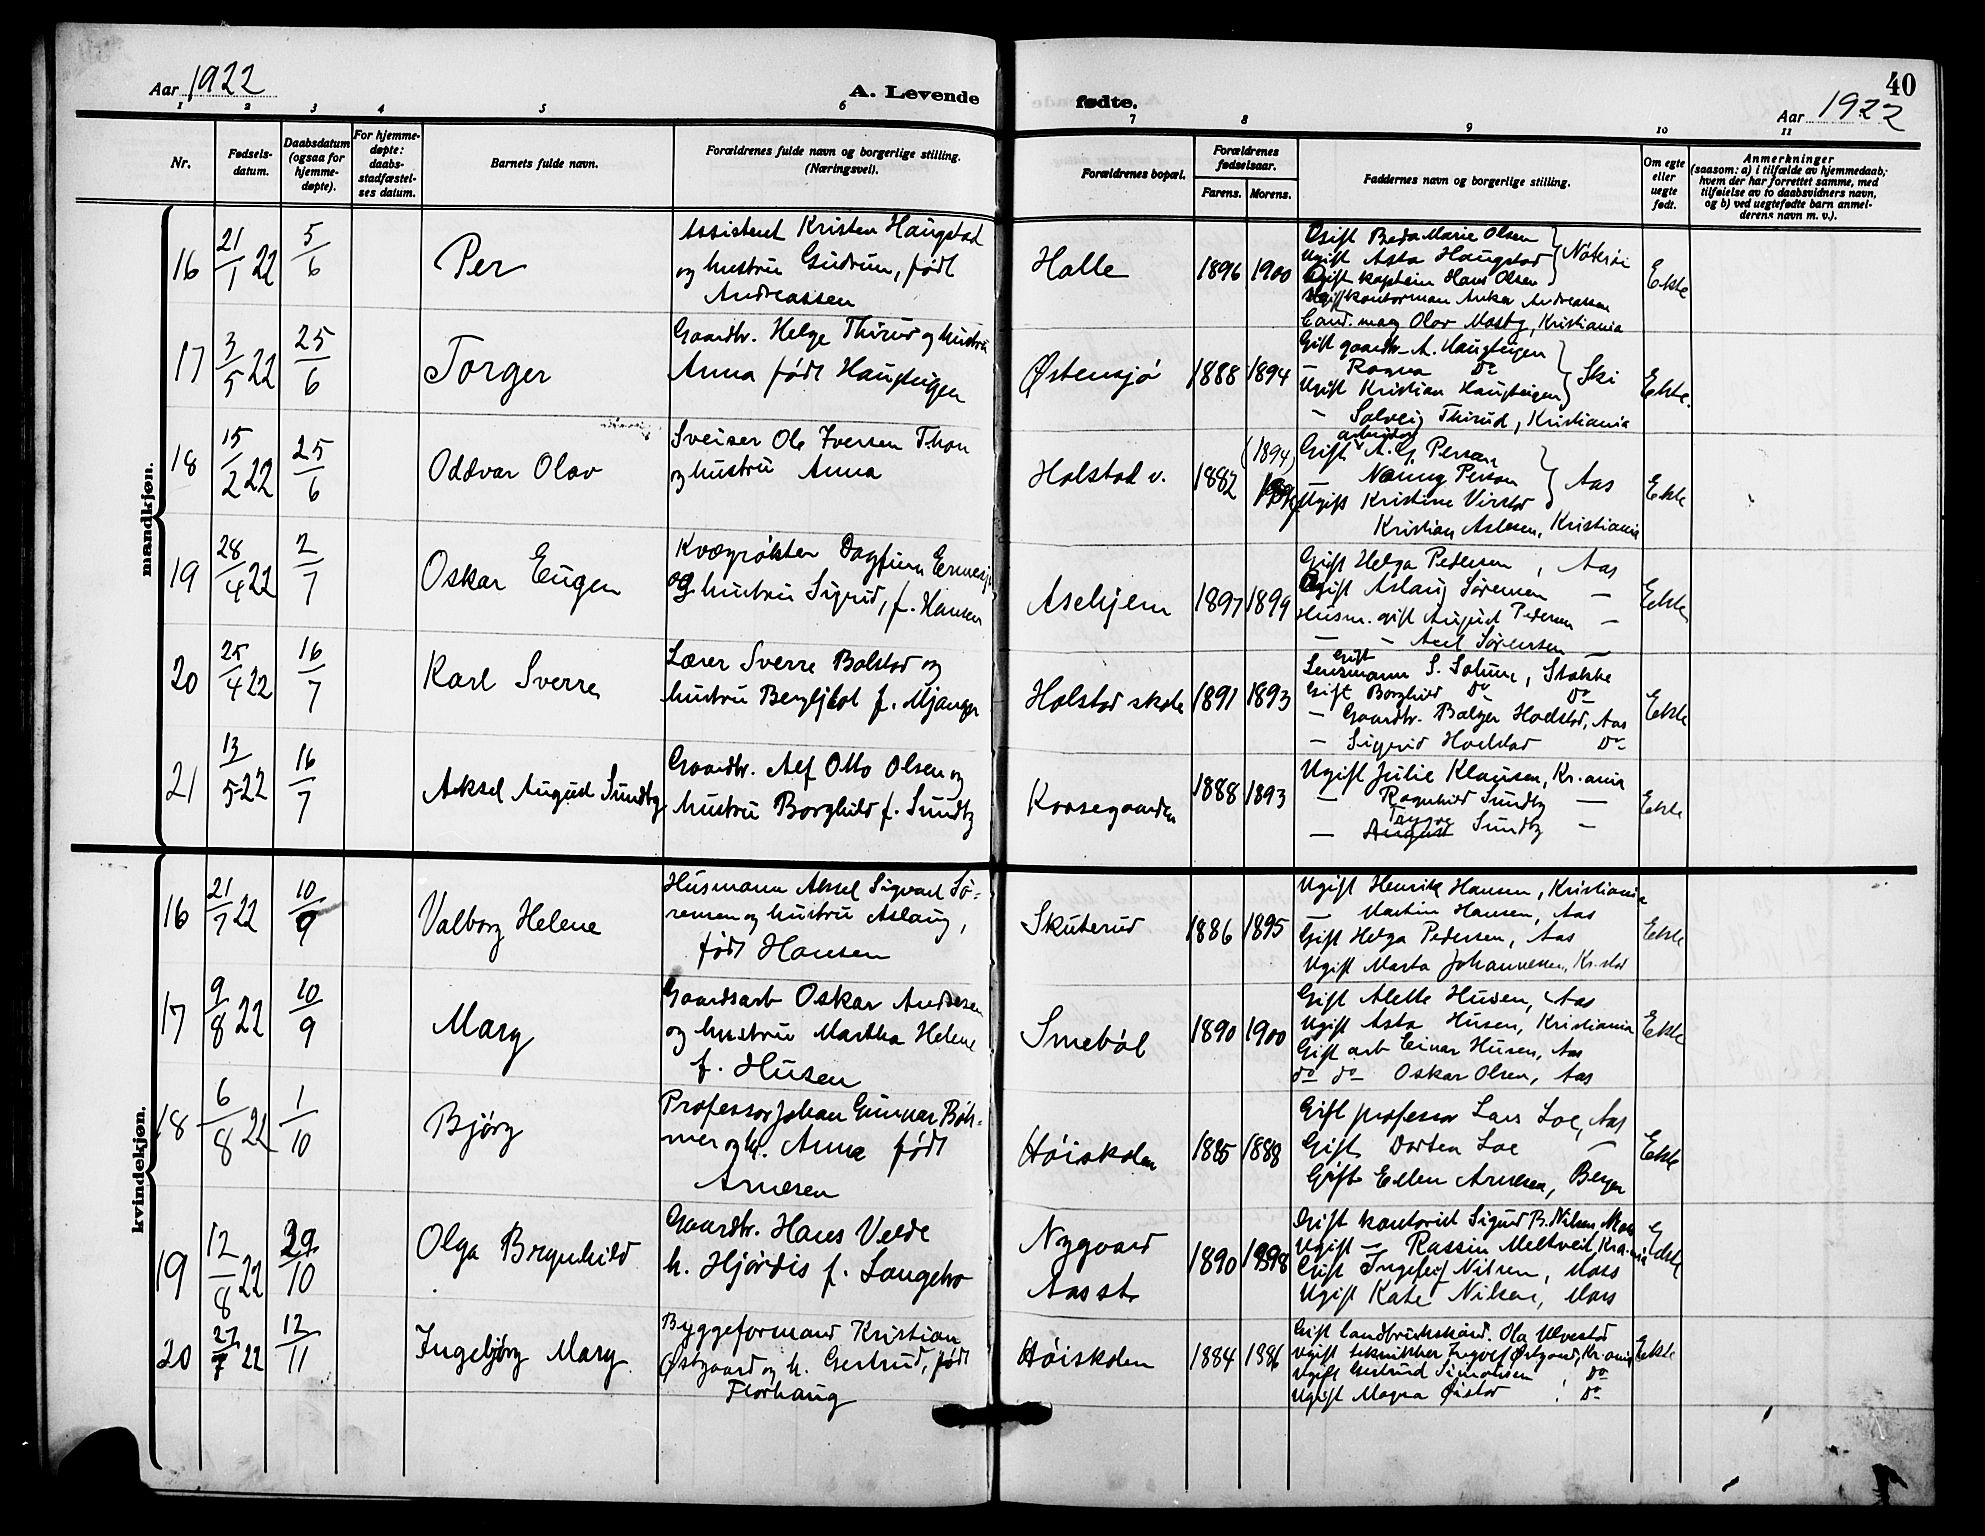 Aar 1922
A. Levende
fødte.
40
Aar 1922
1 2 3 4 5 6 7 8 9 10 11
Nr.
Fødsels-
datum.
Daabsdatum
(ogsaa for
hjemme-
døpte).
For hjemme-
døpte:
daabs-
stadfæstel-
ses datum.
Barnets fulde navn.
Forældrenes fulde navn og borgerlige stilling.
(Næringsvei).
Forældrenes bopæl.
Forældrenes
fødselsaar.
Farens. Morens.
Faddernes navn og borgerlige stilling.
Om egte
eller
uegte
født.
Anmerkninger
(saasom: a) i tilfælde av hjemmedaab,
hvem der har forrettet samme, med
tilføielse av to daabsvidners navn,
og b) ved uegtefødte barn anmel-
derens navn m. v.).
mandkjøn.
16 21/1 22 5/6 Per
Assistent Kristen Haugstad
og hustru Gudrun, født
Andreassen
Holle 1896 1900
Gift Beda Marie Olsen
Ugift Asta Haugstad
Gift kaptein Hans Olsen
Nøterøi
Ugift kontorman Anker Andreassen
Cand. mag Olav Mosby, Kristiania
Ekte
17 3/5 22 25/6 Torger
Gaardbr. Helge Thirud og hustru
Anna født Haugteigen
Østensjö 1888 1894
Gift gaardbr. A. Haugteigen
— Ragna Do
Ugift Kristian Haugteigen
Ski
— Solveig Thirud, Kristiania
Ekte.
18 15/2 22 25/6 Oddvar Olav
Sveiser Ole Iversen Thon
og hustru Anna
Holstad v. 1882 (1894)
arbeider
Gift A. G. Person
Nanny Person
Ugift Kristine
Aas
Kristian Aslesen, Kristiania
Ekte
19 28/4 22 2/7 Oskar Eugen
Kvægrøkter Dagfinn
og hustru Sigrid, f. Hansen
Aschjem 1897 1899
Gift Helga Pedersen, Aas
Gift Aslaug Sørensen —
Husm. gift August Pedersen —
— — Axel Sørensen —
Ekte
20 25/4 22 16/7 Karl Sverre
Lærer Sverre Bolstad og
hustru Bergljot f. Mjanger
Holstad skole 1891 1893
gift
Lensmann S. Solum, Stokke
Gift Borghild Do Do
— Gaardbr. Bølger Holstad, Aas
— Sigrid Holstad Do
Ekte
21 13/5 22 16/7 Aksel August Sundby
Gaardbr. Alf Otto Olsen og
hustru Borghild f. Sundby
Korsegaarden 1888 1893
Ugift Julie Klausen, Kr.ania
— Ragnhild Sundby —
Trygve
— August Sundby —
Ekte
kvindekjøn.
16 21/7 22 10/9 Valborg Helene
Husmann Aksel Sigvart Sø-
rensen og hustru Aslaug,
født Hansen
Skuterud 1886 1895
Ugift Henrik Hansen, Kristiania
— Martin Hansen, Aas
Gift Helga Pedersen, Aas
Ugift Marta Johannesen, Kr.stad
Ekte
17 9/8 22 10/9 Mary
Gaardsarb Oskar Andersen
og hustru Martha Helene
f. Husen
Smebøl 1890 1900
Gift Alette Husen, Aas
Ugift Asta Husen, Kristiania
Gift arb Einar Husen, Aas
do do Oskar Olsen, Aas
Ekte
18 6/8 22 1/10 Bjørg
Professor Johan Gunnar Bøh-
mer og h. Anna født
Arnesen
Høiskolen 1885 1888
Gift professor Lars Loe, Aas
Gift Dortea Loe —
Gift Ellen Arnesen, Bergen
Ekte
19 12/8 22 29/10 Olga Brynhild
Gaardbr. Hans Velde
h. Hjørdis f. Langebro
Nygaard
Aas st. 1890 1898
Gift kontorist Sigurd B. Nilsen Moss
Ugift — Rassin Meltveit, Kra.nia
Gift Ingeleif Nilsen, Moss
Ugift Kate Nilsen, Moss
Ekte
20 27/7 22 12/11 Ingebjørg Mary
Byggeformand Kristian
Østgaard og h. Gertrud, født
Florhaug
Høiskolen 1884 1886
Gift landbrukskand. Ola Ulvestad
Ugift tekniker Ingvef Østgaard, Kr.ania
Ugift Gertrud Simonsen, Do
Ugift Magna Øistad, Do
Ekte